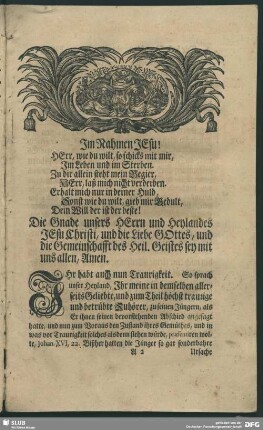 Im Nahmen JEsu!
HErr, wie du wilt, so schicks mit mir,
Im Leben und im Sterben.
Zu dir allein steht mein Begier,
HErr, laß mich nicht verderben.
Erhalt mich nur in deiner Huld,
Sonst wie du wilt, gieb mir Gedult,
Dein Will der ist der beste!
Die Gnade unsers HErrn und Heylandes
JEsu Christi, und die Liebe GOttes, und
die Gemeinschafft des Heil. Geistes sey mit
uns allen, Amen.
IHr habt auch nun Traurigkeit. So sprach
unser Heyland, Ihr meine in demselben aller-
seits Geliebte, und zum Theil höchst traurige
und betrübte Zuhörer, zu seinen Jüngern, als
Er ihnen seinen bevorstehenden Abschied
hatte, und nun zum Voraus den Zustand ihres Gemüthes, und in
was vor Traurigkeit solches alsdenn stehen würde, wol-
te, Johan. XVI, 22. Bißher hatten die Jünger so gar sonderbahre
A 2 Ursache
SLUB
DFG